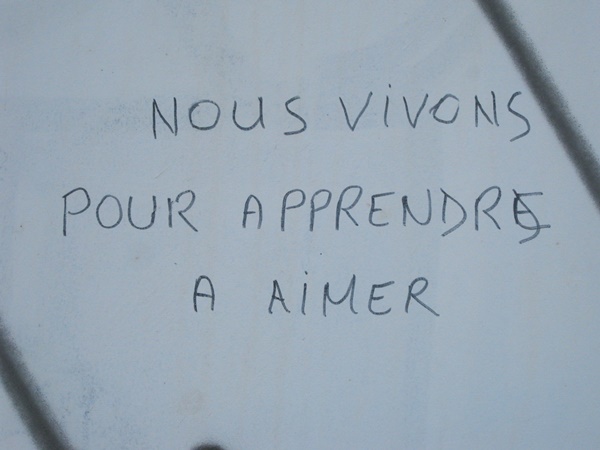 NOUS VIVONS
POUR APPRENDRE
A AIMER